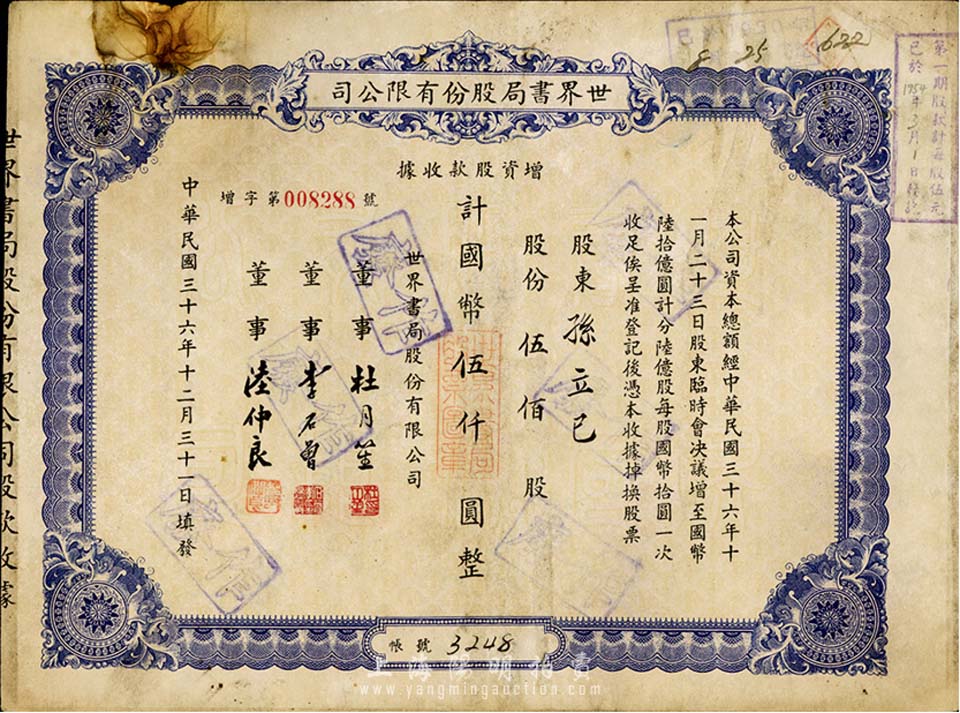 世界書局股份有限公司
增資股款收據
增字第008288號
本公司資本總額經中華民國三十六年十
一月二十三日股東臨時會決議增至國幣
陸拾億圓計分陸億股每股國幣拾圓一次
收足俟呈准登記後憑本收據掉換股票
股東 孫立己
股份 伍佰 股
計國幣 伍仟 圓整
世界書局股份有限公司
董事 杜月笙
董事 李石曾
董事 陸仲良
中華民國三十六年十二月三十一日填發
帳號 3248
第一期股款計每股伍元
已於1954年3月1日發訖
8 25
622
世界書局股份有限公司股款收據
上海陽明拍賣
www.yangmingauction.com